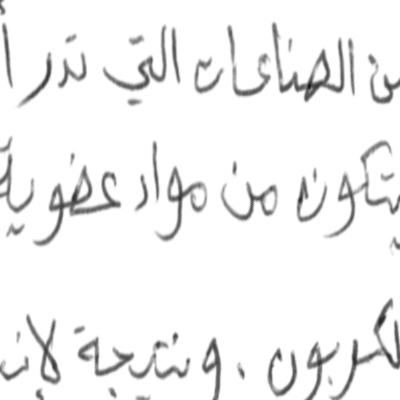 من الصناعات التي تدر أ
يتكون من مواد عضوية
لكربون . ونتيجة لإنـ